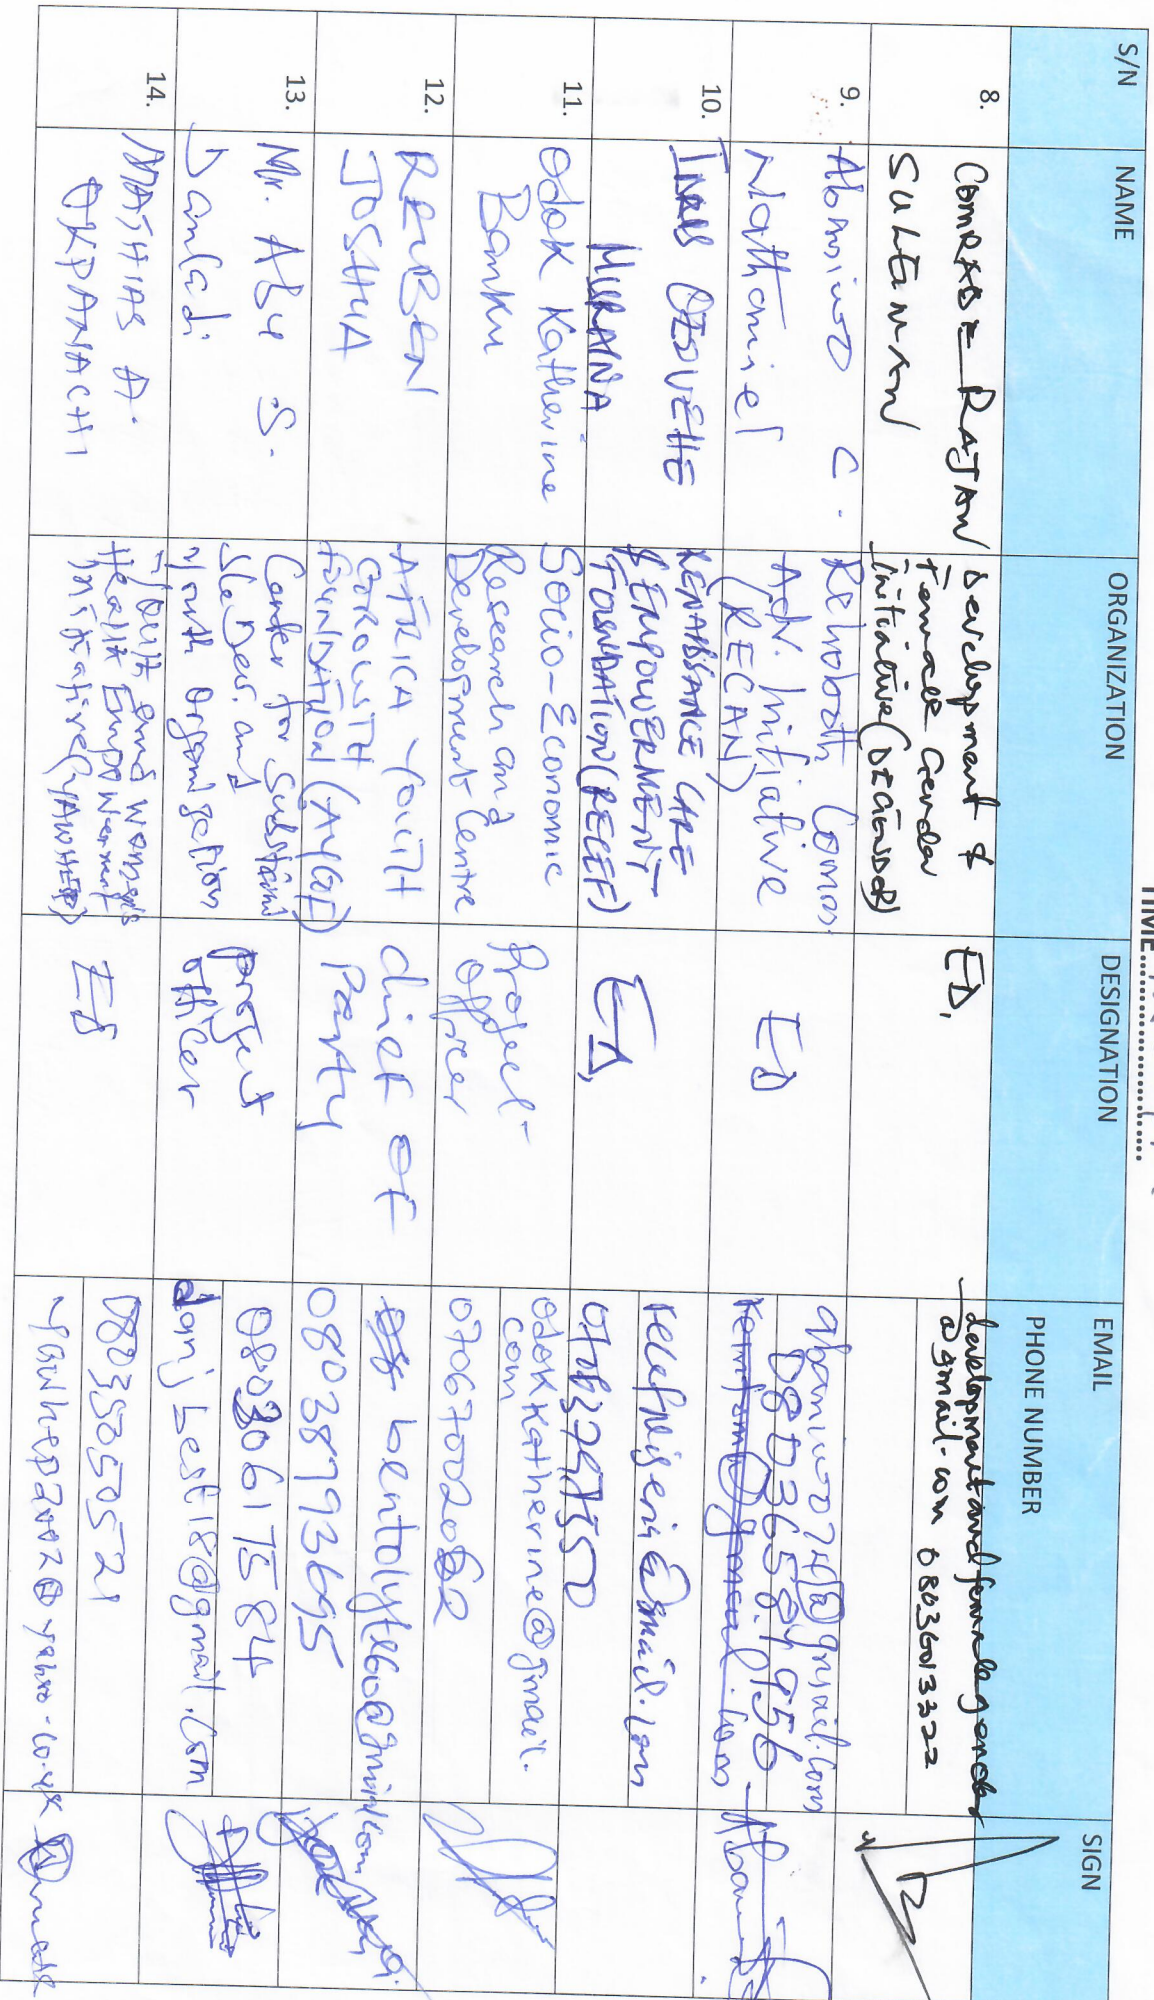 TIME
S/N NAME ORGANIZATION DESIGNATION EMAIL PHONE NUMBER SIGN
8. COMRADE RAJAN
SULEIMAN
Development &
Female Gender
Initiative (DEGENDER)
ED.
developmentandfemalegender
@gmail.com 08036013322
9. Abamiwo C.
Nathaniel
Rehoboth Comm.
Adv. Initiative
(RECAN)
ED
abamiwo74@gmail.com
08036584956
10. OSOVEHE
MURAINA
RENAISSANCE CARE
& EMPOWERMENT
FOUNDATION (RECEF)
ED,
recefnigeria@gmail.com
11. Odok Katherine
Banku
Socio-Economic
Research and
Development Centre
Project
Officer
odokkatherine@gmail.
com
12. REUBEN
JOSHUA
AFRICA YOUTH
GROWTH
FOUNDATION (AYGF)
chief of
Party
08038793695
13. Mr. Abu S.
Danladi
Center for
and
Youth Organization
project
officer
08030617584
danjbest18@gmail.com
14. MATHIAS A.
OKPANACHI
Youth and Women's
Health Empowerment
Initiative (YAWHED)
ED
08035805052